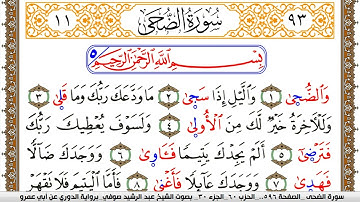 ١١ سُورَةُ الضُّحَى ٩٣
بِسْمِ اللَّهِ الرَّحْمَٰنِ الرَّحِيمِ ٥
وَالضُّحَىٰ ١ وَاللَّيْلِ إِذَا سَجَىٰ ٢ مَا وَدَّعَكَ رَبُّكَ وَمَا قَلَىٰ ٣
وَلَلْآخِرَةُ خَيْرٌ لَّكَ مِنَ الْأُولَىٰ ٤ وَلَسَوْفَ يُعْطِيكَ رَبُّكَ
فَتَرْضَىٰ ٥ أَلَمْ يَجِدْكَ يَتِيمًا فَـَٔاوَىٰ ٦ وَوَجَدَكَ ضَآلًّا
فَهَدَىٰ ٧ وَوَجَدَكَ عَآئِلًا فَأَغْنَىٰ ٨ فَأَمَّا الْيَتِيمَ فَلَا تَقْهَرْ
سورة الضحى . الصفحة ٥٩٦ . الحزب ٦٠ . الجزء ٣٠ . بصوت الشيخ عبد الرشيد صوفي . برواية الدوري عن أبي عمرو